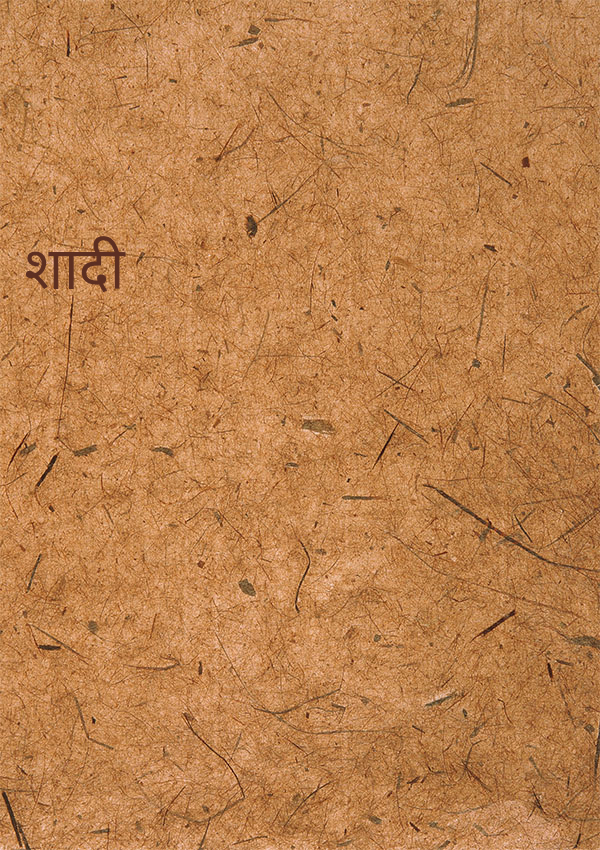 शादी